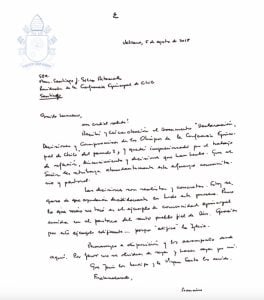 Vaticano, 5 de agosto de 2018
S.E.R.
Mons. Santiago J. Silva Retamales
Presidente de la Conferencia Episcopal de Chile
Santiago
Querido hermano,
Recibí y leí con atención el documento "Declaración,
Decisiones y Compromisos de los Obispos de la Conferencia Episcopal
de Chile" del y quedé impresionado por el trabajo
de reflexión, discernimiento y decisiones que han hecho. Que el
Señor les retribuya abundantemente este esfuerzo comunitario
y pastoral.
Las decisiones son realistas y concretas. Estoy seguro
de que ayudarán decididamente en todo este proceso. Pero
lo que más me tocó es el ejemplo de comunidad episcopal
unida en el pastoreo del santo pueblo fiel de Dios. Gracias
por este ejemplo edificante... porque "edifica" la Iglesia.
Permanezco a disposición y los acompaño desde
aquí. Por favor no se olviden de rezar y hacer rezar por mí.
Que Jesús los bendiga y la Virgen Santa los cuide.
Fraternalmente,
Francisco